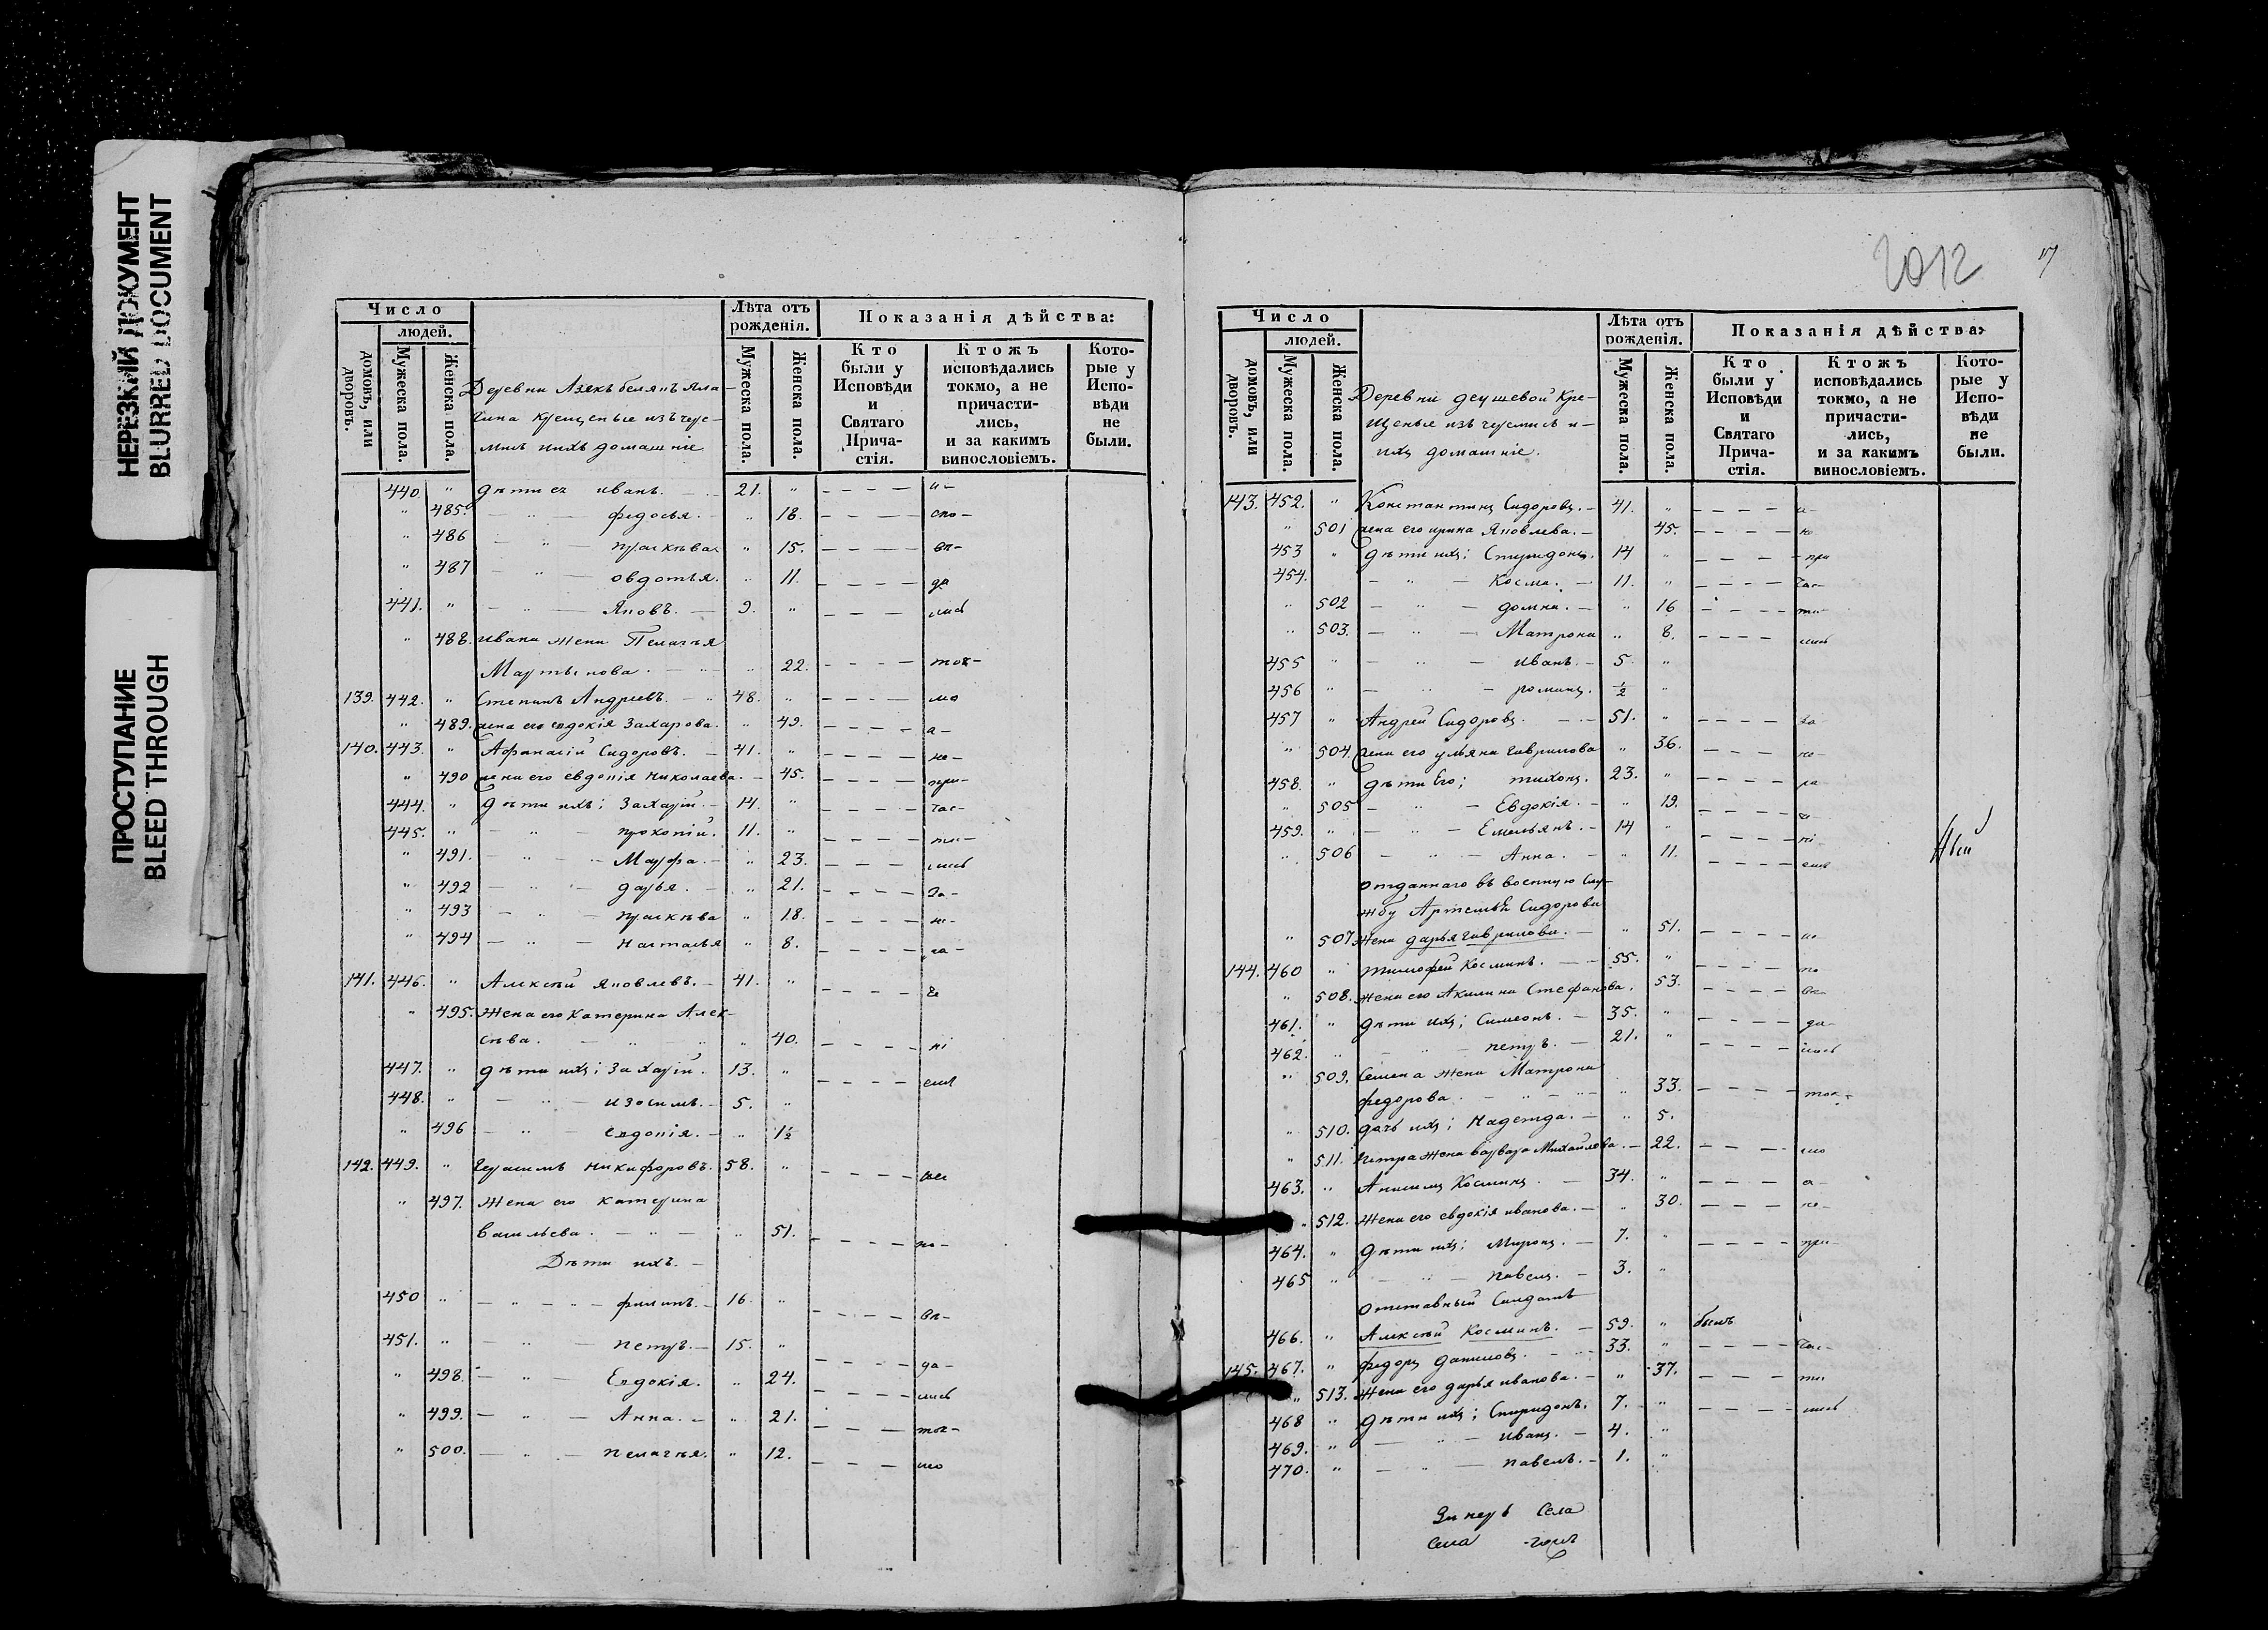 НЕРЕЗКИЙ ДОКУМЕНТ
BLURRED DOCUMENT
ПРОСТУПАНИЕ
BLEED THROUGH
Число
людей.
домовъ, или дворовъ.
Мужеска пола.
Женска пола.
Деревни
крещеные изъ чере-
мисъ ихъ домашніе
Лѣта отъ рожденія.
Мужеска пола.
Женска пола.
Показанія дѣйства:
Кто были у Исповѣди и Святаго Прича- стія.
Ктожъ исповѣдались токмо, а не причасти- лись, и за какимъ винословіемъ.
Кото- рые у Испо- вѣди не были.
440. " дѣти ея иванъ. — 21. " и-
" 485. — " — федосья. — " 18. спо-
" 486 — " — праскѣва " 15. вѣ-
" 487 — " — овдотья. " 11. да
441. " — " — Яковъ. — 9. " лись
" 488. ивана жена Пелагѣя
Мартынова. — " 22. ток-
139. 442. " Степанъ Андреевъ. — 48. " мо
" 489. жена его евдокія Захарова. " 49. а-
140. 443. " Афанасій Сидоровъ. — 41. " не-
" 490 жена его евдокія Николаева. — 45. при-
444. " дѣти ихъ; Захарій. — 14. " час-
445. " — " — прокопій. 11. " ти-
" 491. — " — Марфа. — " 23. лись
" 492 — " — дарья. — " 21. За-
" 493 — " — праскѣва " 18. не-
" 494 — " — Наталья " 8.
141. 446. " Алексѣй Яковлевъ. — 41. "
" 495. Жена его Катерина Алек-
сѣева. — " — " 40. ні
447. " дѣти ихъ; Захарій. 13. " емъ
448. " — " — изосимъ. — 5. "
" 496 — " — евдокія. — " 1½
142. 449. " Герасимъ Никифоровъ. 58. "
" 497. Жена его катерина
васильева. — " — " 51. по-
Дѣти ихъ. —
450 " — " — филипъ. — 16. " вѣ-
451. " — " — петръ. — 15. " да-
" 498. — " — Евдокія. " 24. лись
" 499. — " — Анна. — " 21. ток-
" 500. — " — пелагѣя. " 12. мо
2012
117
Число
людей.
домовъ, или дворовъ.
Мужеска пола.
Женска пола.
Деревни деушевой Кре-
щеные изъ черемисъ и-
ихъ домашніе.
Лѣта отъ рожденія.
Мужеска пола.
Женска пола.
Показанія дѣйства:
Кто были у Исповѣди и Святаго Прича- стія.
Ктожъ исповѣдались токмо, а не причасти- лись, и за какимъ винословіемъ.
Кото- рые у Испо- вѣди не были.
143. 452. " Константинъ Сидоровъ. — 41. " а-
" 501 жена его ирина Яковлева. — 45. не
453 " дѣти ихъ; Спиридонъ. 14 " при
454. — " — Косма. — 11. " час-
" 502 — " — домна. — " 16 ти-
" 503. — " — Матрона " 8. лись
455 " — " — иванъ. — 5. "
456 " — " — романъ. ½ "
457 " Андрей Сидоровъ. — 51. " за
" 504. жена его ульяна гаврилова " 36. не-
458. " дѣти Его; тихонъ. 23. "
" 505 — " — Евдокія. — " 19.
459. " — " — Емельянъ. — 14 " ні-
" 506 — " — Анна. — " 11. емъ
отданнаго въ военную слу-
жбу Артемья Сидорова
" 507 жена дарья гаврилова. — " 51. ис
144. 460 " тимофей Косминъ. — 55. " по
" 508. жена его Акилина Стефанова. 53. вѣ-
461. " дѣти ихъ; Симеонъ. — 35. " да-
462. " — " — петръ. — 21. " лись
" 509. Семена жена Матрона
федорова. — " — " 33. ток-
" 510. дочь ихъ; Надежда. — " 5.
" 511. петра жена варвара Михайлова. — 22. мо
463. " Анисимъ Косминъ. — 34. " а-
" 512. жена его евдокія иванова. — " 30. не-
464. " дѣти ихъ; Миронъ. — 7. " при-
465 " — " — павелъ. — 3. "
отставный Салдатъ
466. " Алексѣй Косминъ. — 59. " былъ
145. 467. " федоръ даниловъ. — 33. " час-
" 513. Жена его дарья иванова. — " 37. ти
468 " дѣти ихъ; Спиридонъ. 7. " лись
469. " — " — иванъ. — 4. "
470. " — " — павелъ. — 1. "
села
села